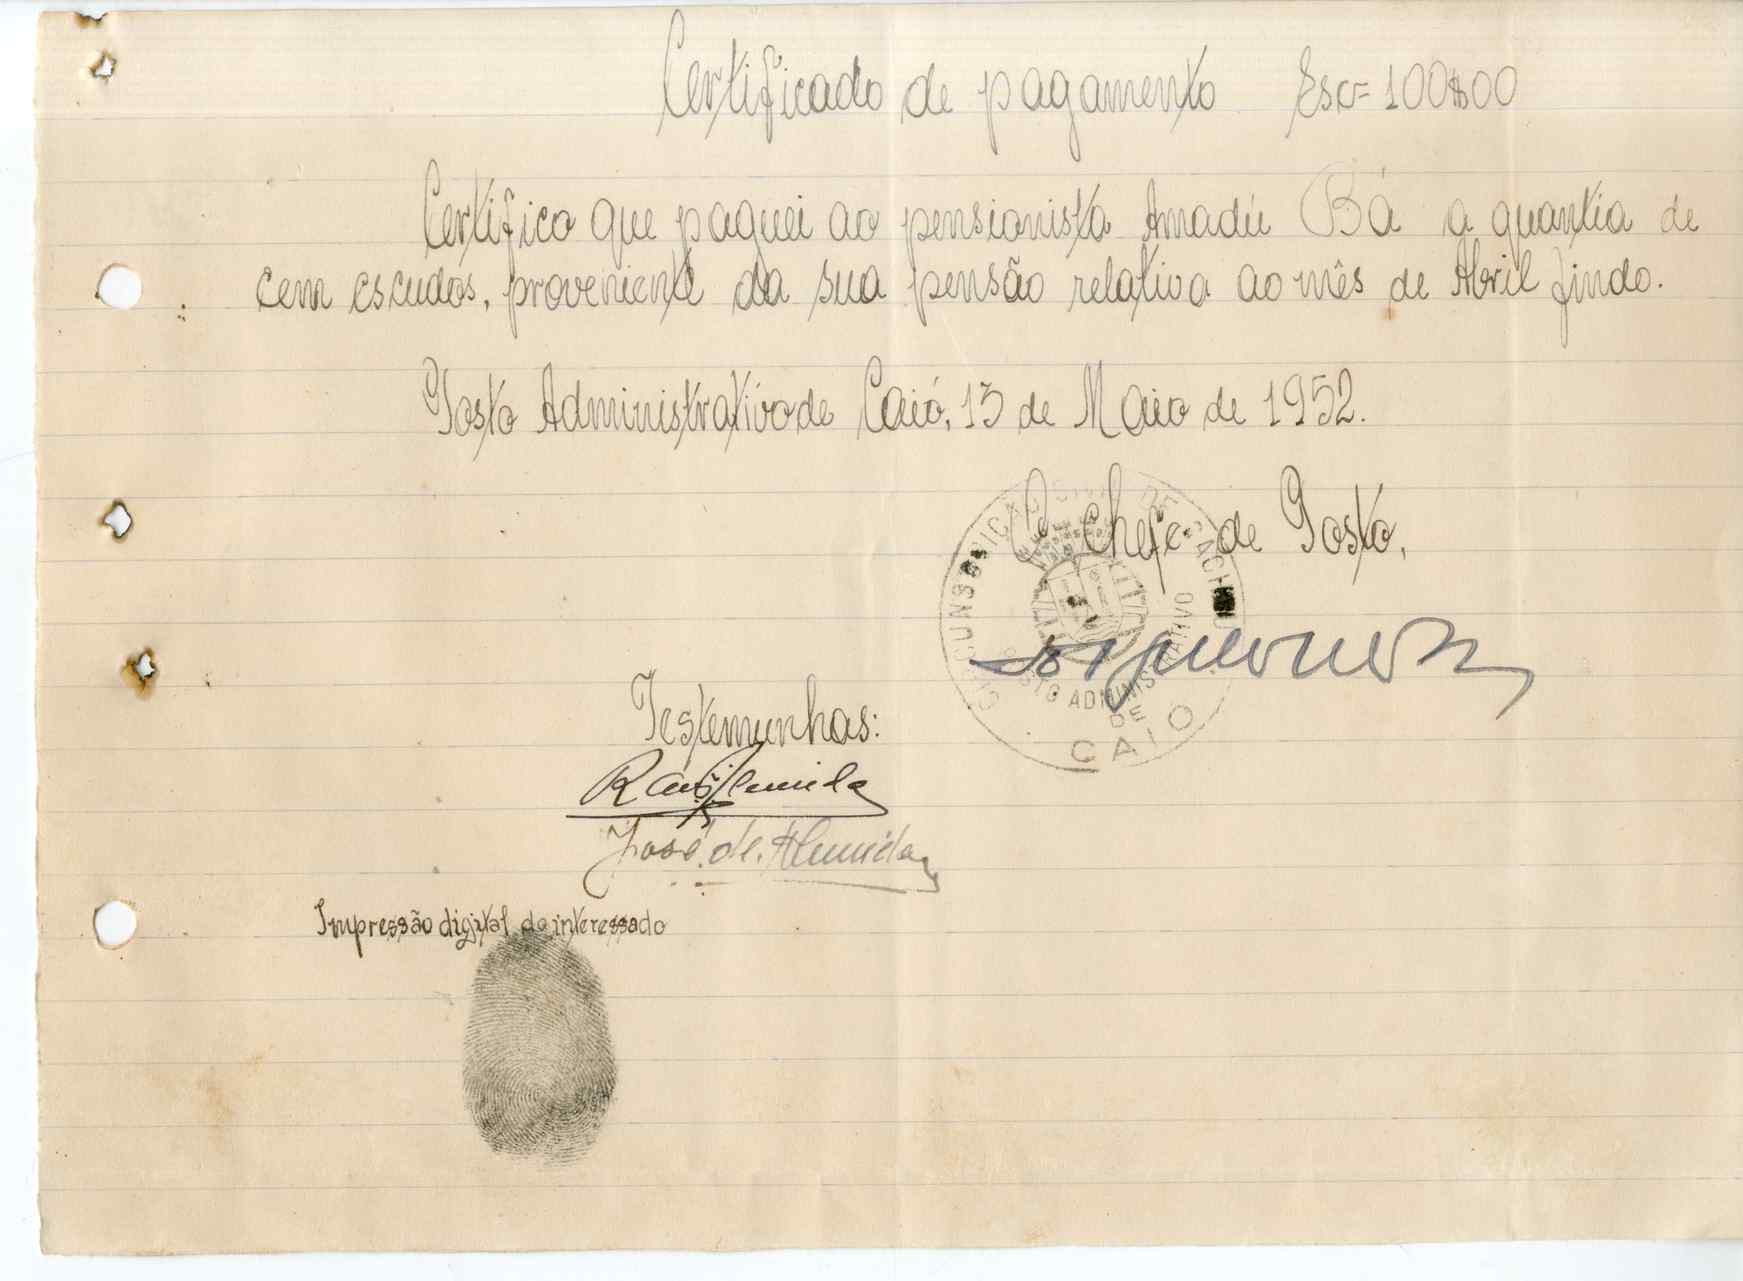 Certificado de pagamento Esc= 100$00
Certifico que paguei ao pensionista Amadú Bá a quantia de
cem escudos, proveniente da sua pensão relativa ao mês de Abril findo.
Posto Administrativo de Caió, 13 de Maio de 1952.
O Chefe de Posto,
CIRCUNSCRIÇÃO CIVIL DE CACHEU
POSTO ADMINISTRATIVO
DE
CAIO
Testemunhas:
José de Almeida
Impressão digital do interessado